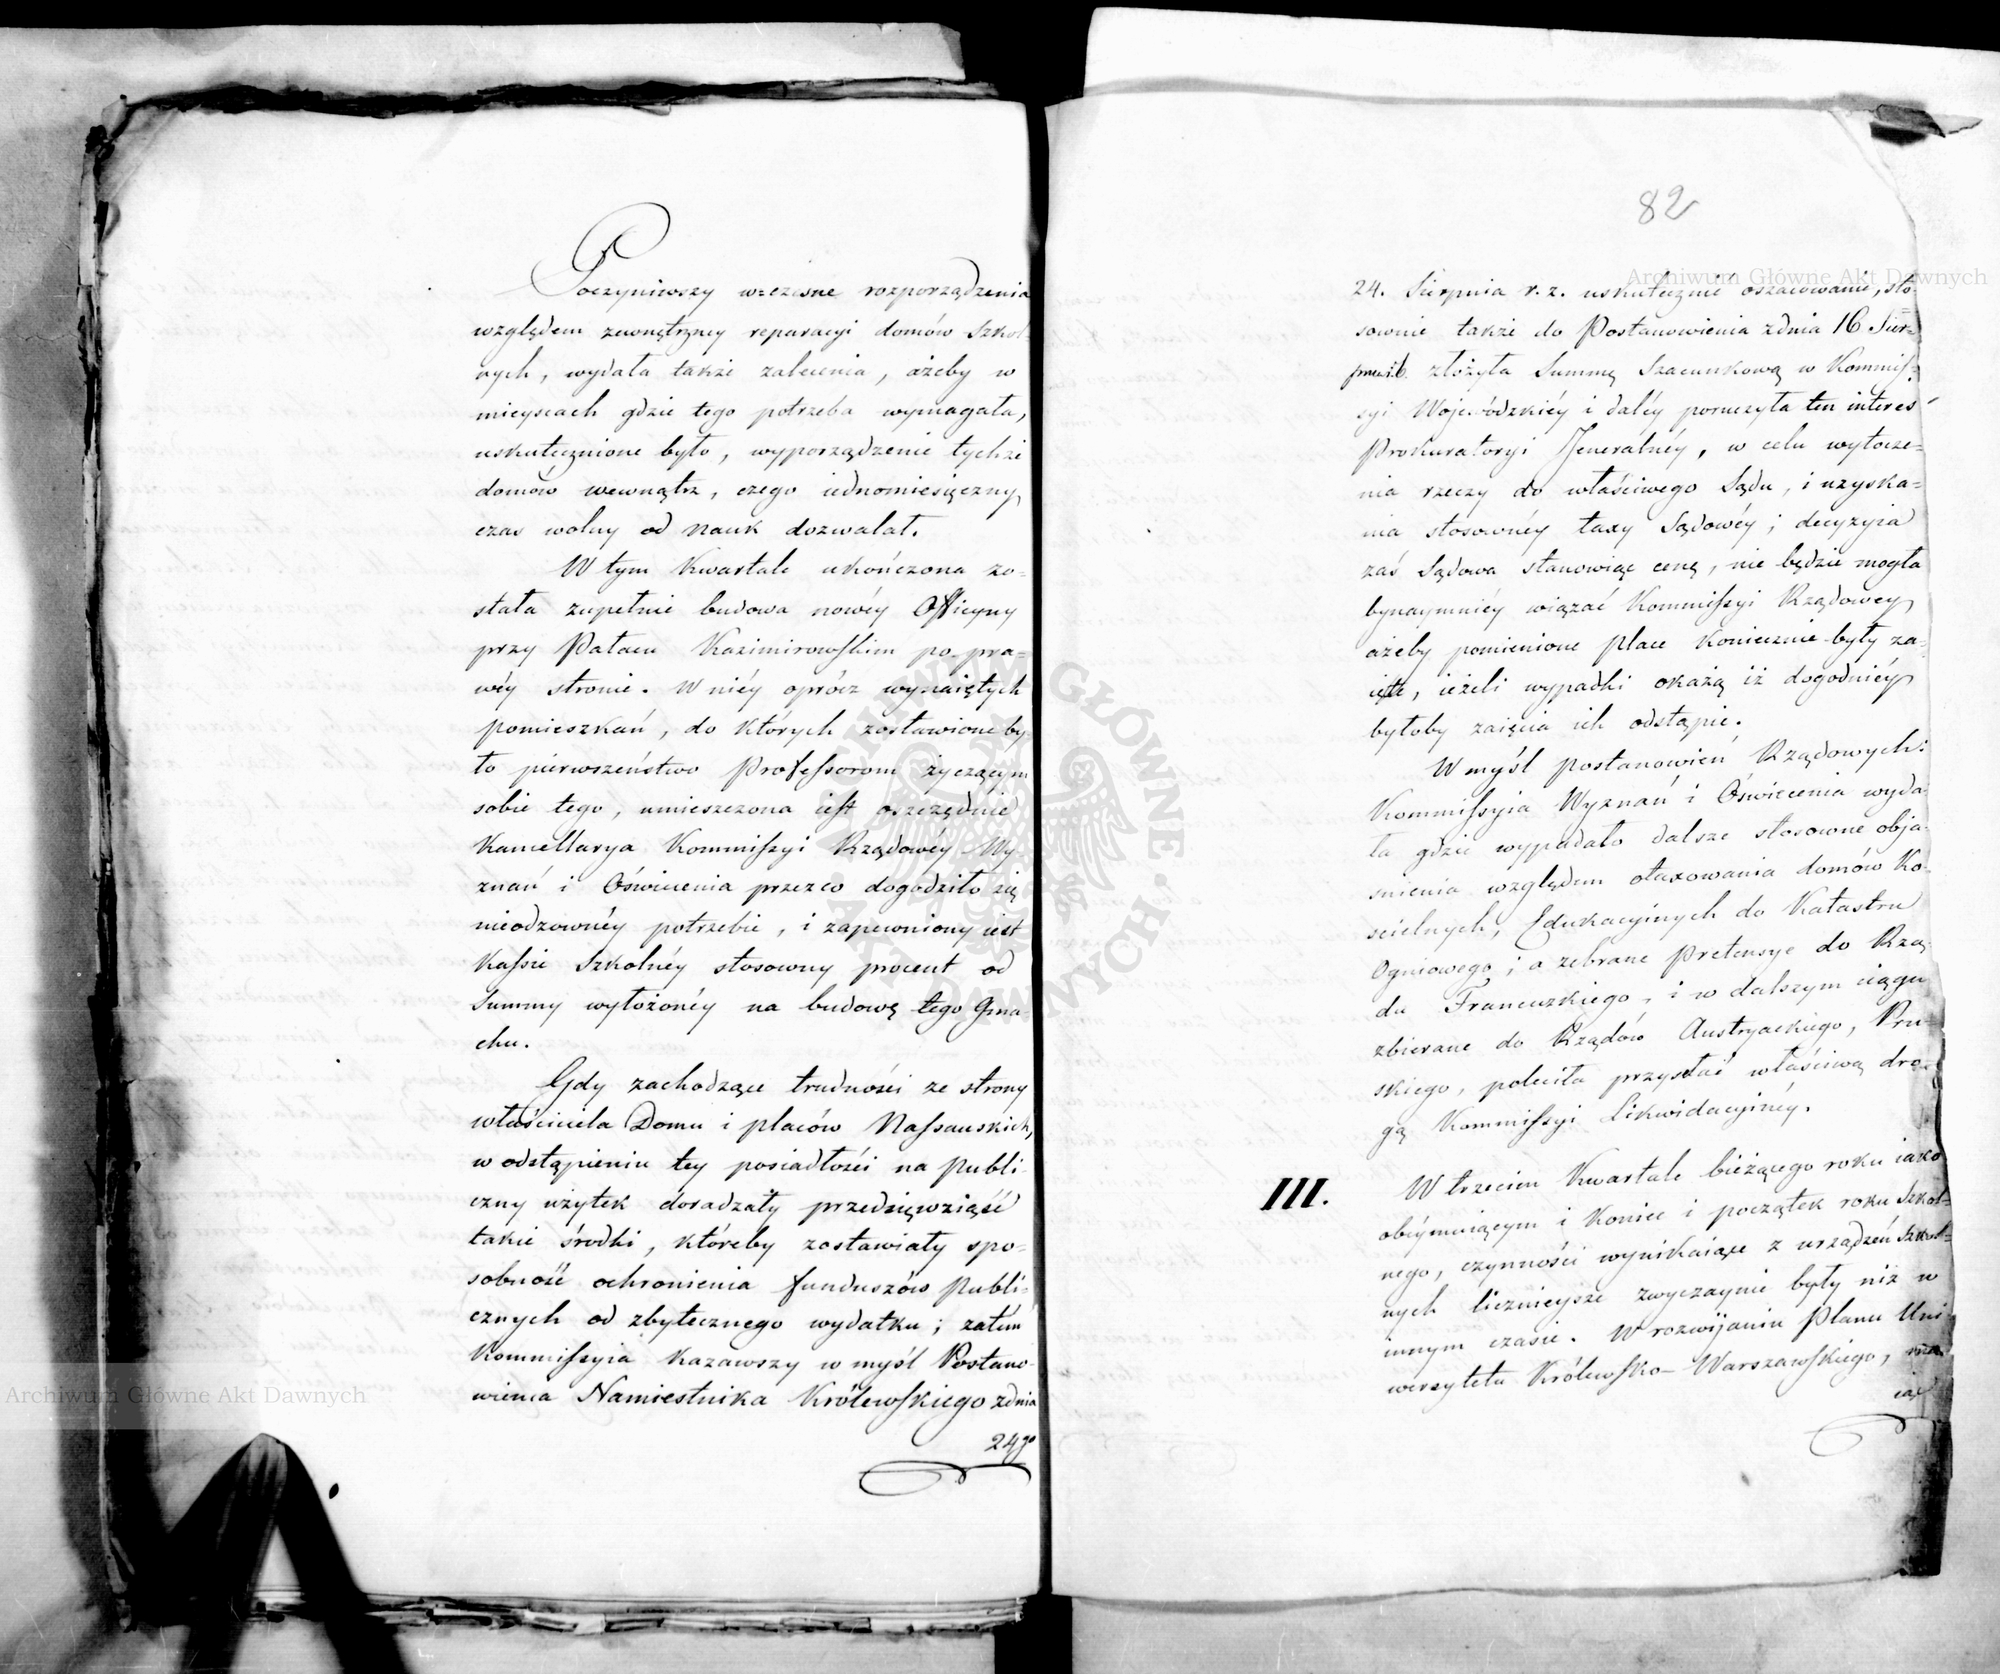 Poczyniwszy wczesne rozporządzenia
względem zewnętrzney reparacyi domów Szkol-
nych, wydała także zalecenia, ażeby w
mieyscach gdzie tego potrzeba wymagała,
uskutecznione było, wyporządzenie tychże
domów wewnątrz, czego iednomiesięczny
czas wolny od nauk dozwalał.
W tym Kwartale ukończona zo-
stała zupełnie budowa nowéy Officyny
przy Pałacu Kazimirowskim po pra-
wéy stronie. W niéy oprócz wynaiętych
pomieszkań, do których zostawione by-
ło pierwszeństwo Professorom życzącym
sobie tego, umieszczona iest oszczędnie
Kancellarya Kommissyi Rządowéy Wy-
znań i Oświecenia przez co dogodziło się
nieodzownéy potrzebie, i zapewniony iest
Kassie Szkolnéy stosowny procent od
Summy wyłożonéy na budowę tego Gma-
chu.
Gdy zachodzące trudności ze strony
właściciela Domu i placów Nassauskich,
w odstąpieniu tey posiadłości na publi-
czny użytek doradzały przedsięwziąść
takie środki, któreby zostawiały spo-
sobność ochronienia funduszów publi-
cznych od zbytecznego wydatku; zatém
Kommissyia kazawszy w myśl Postano-
wienia Namiestnika Królewskiego z dnia
24go
82
24. Sierpnia r. z. uskutecznić oszacowanie, sto-
sownie także do Postanowienia z dnia 16 Sier-
pnia r. b. złożyła Summę Szacunkową w Kommis-
syi Woiewódzkiéy i daléy poruczyła ten interes
Prokuratoryi Jeneralnéy, w celu wytocze-
nia rzeczy do właściwego Sądu, i uzyska-
nia stosownéy taxy Sądowéy; decyzyia
zaś Sądowa stanowiąc cenę, nie będzie mogła
bynaymniéy wiązać Kommissyi Rządowey
ażeby pomienione place koniecznie były za-
ięte, ieżeli wypadki okażą iż dogodniéy
byłoby zaięcia ich odstąpić.
W myśl postanowień Rządowych:
Kommissyia Wyznań i Oświecenia wyda-
ła gdzie wypadało dalsze stosowne obja-
śnienia względem otaxowania domów Ko-
ścielnych, Edukacyinych do Katastru
Ogniowego; a zebrane Pretensye do Rzą-
du Francuzkiego, i w dalszym ciągu
zbierane do Rządów Austryackiego, Pru-
skiego, poleciła przysłać właściwą dro-
gą Kommissyi Likwidacyinéy.
III. W trzecim Kwartale bieżącego roku iako
obéymuiącym i koniec i początek roku Szkol-
nego, czynności wynikaiące z urządzeń Szkol-
nych licznieysze zwyczaynie były niż w
innym czasie. W rozwijaniu Planu Uni-
wersytetu Królewsko-Warszawskiego, ma
iąc
Archiwum Główne Akt Dawnych
Archiwum Główne Akt Dawnych
ARCHIWUM GŁÓWNE · AKT DAWNYCH ·